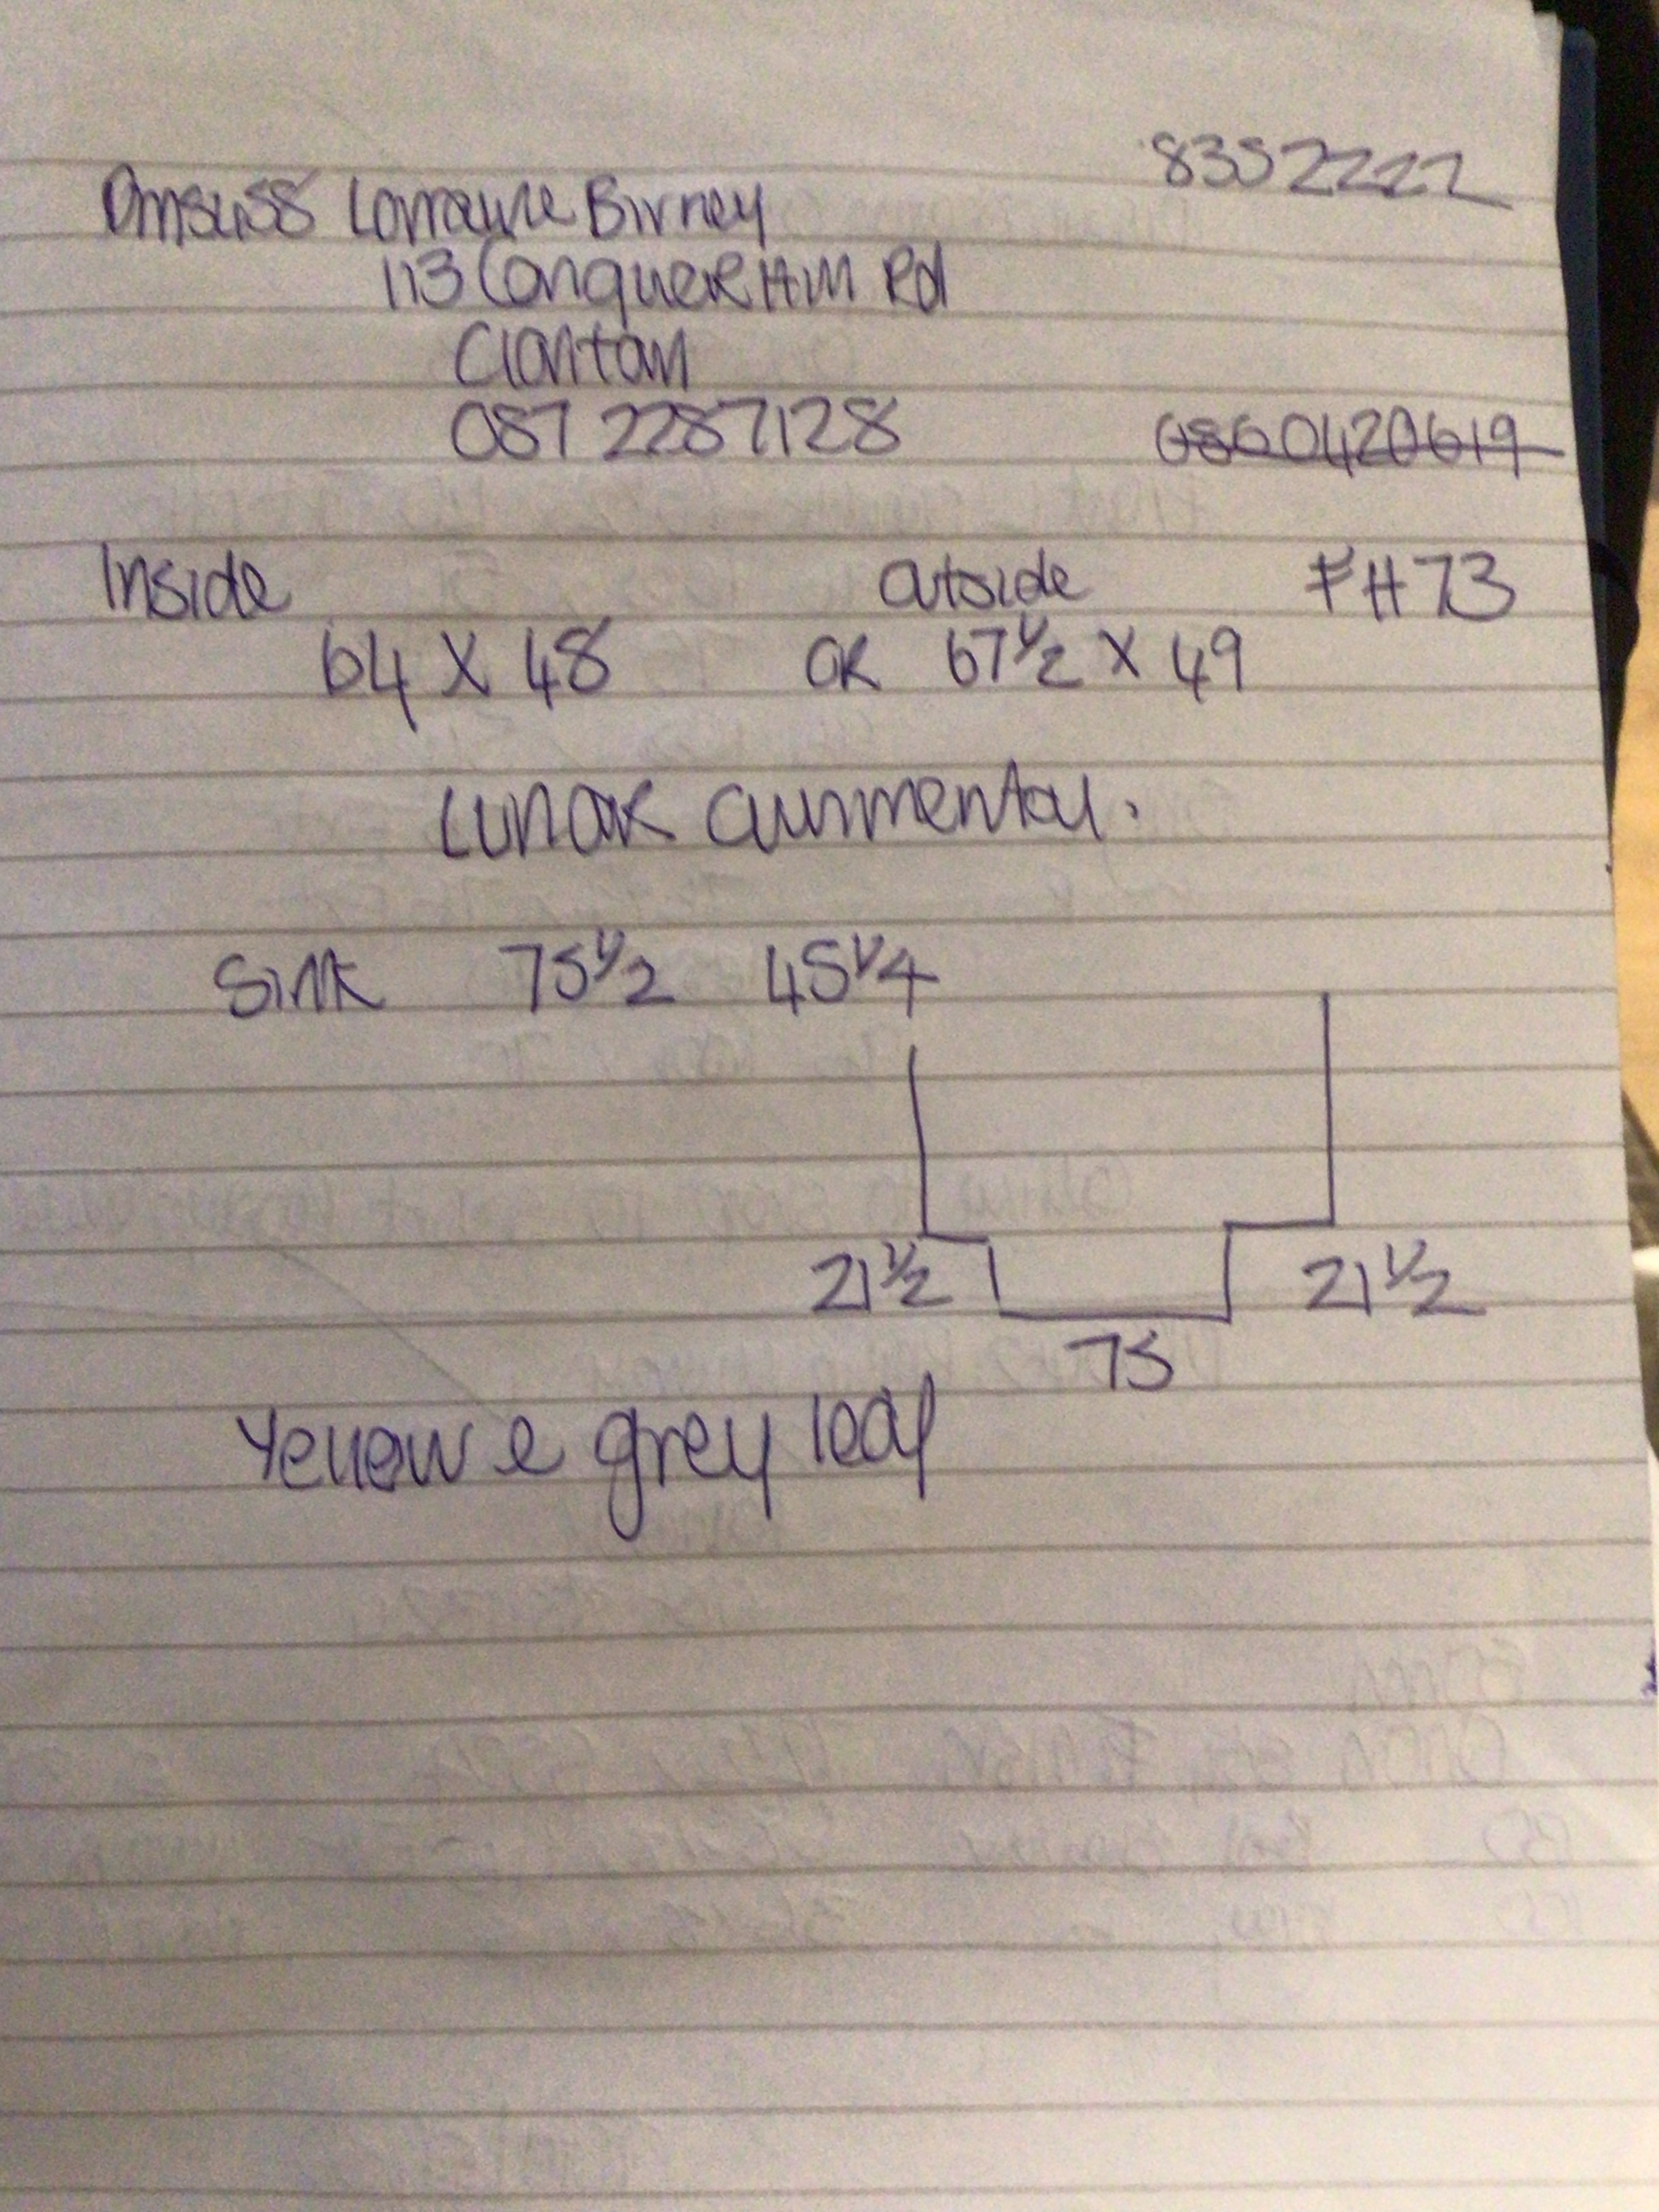 8352222
Dmsu58 Lorraine Birney
113 Conquer Hill Rd
Clontarf
087 2287128 0860420619
Inside outside FH 73
64 X 48 OR 67 1/2 X 49
LUNAR
Sink 75 1/2 45 1/4
21 1/2 21 1/2
75
Yellow & grey leaf